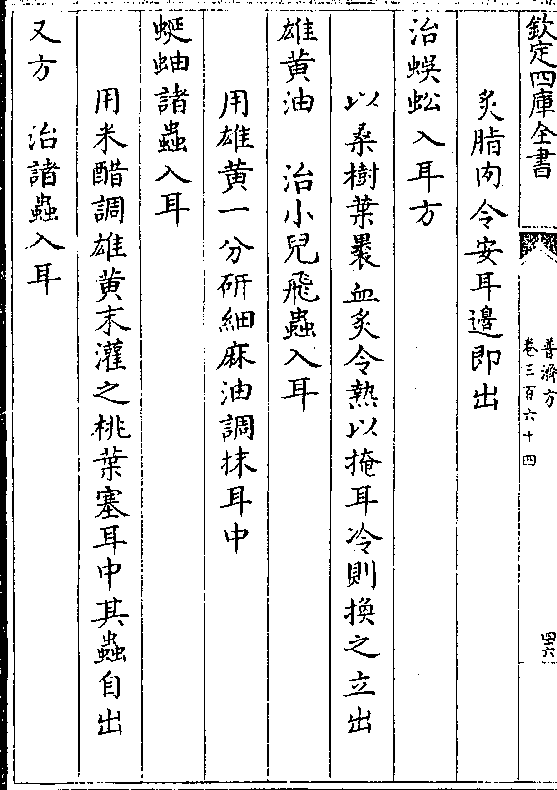 欽定四庫全書
普濟方
卷三百六十四
四六
炙腈肉令安耳邊即出
治蜈蚣入耳方
以桑樹葉裹血炙令熱以掩耳冷則換之立出
雄黄油　治小兒飛蟲入耳
用雄黄一分研細麻油調抹耳中
蜒蚰諸蟲入耳
用米醋調雄黄末灌之桃葉塞耳中其蟲自出
又方　治諸蟲入耳